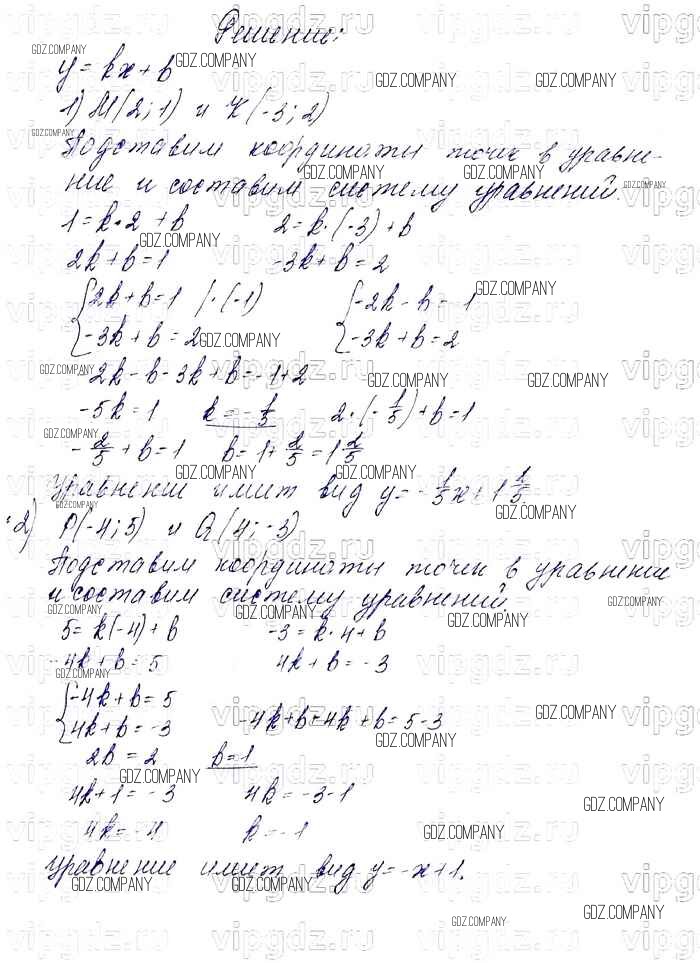 Решение:
y = kx + b
1) M(2; 1) и K(-3; 2)
Подставим координаты точек в уравне-
ние и составим систему уравнений.
1 = k·2 + b 2 = k·(-3) + b
2k + b = 1 -3k + b = 2
{2k + b = 1 |·(-1) {-2k - b = -1
{-3k + b = 2 {-3k + b = 2
-2k - b - 3k + b = -1 + 2
-5k = 1 k = -1/5 2·(-1/5) + b = 1
-2/5 + b = 1 b = 1 + 2/5 = 1 2/5
Уравнение имеет вид y = -1/5x + 1 2/5
2) P(-4; 5) и Q(4; -3)
Подставим координаты точек в уравнение
и составим систему уравнений.
5 = k(-4) + b -3 = k·4 + b
-4k + b = 5 4k + b = -3
{-4k + b = 5
{4k + b = -3 -4k + b + 4k + b = 5 - 3
2b = 2 b = 1
4k + 1 = -3 4k = -3 - 1
4k = -4 k = -1
Уравнение имеет вид y = -x + 1.
GDZ.COMPANY
vipgdz.ru